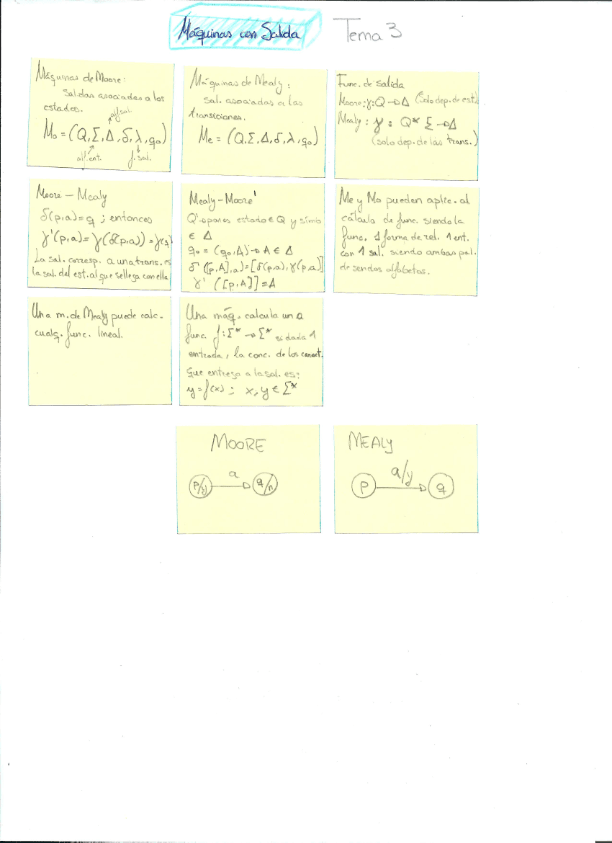 Máquinas con Salida
Tema 3
Máquinas de Moore:
Salidas asociadas a los
estados.
alf. sal.
Mo = (Q, Σ, Δ, δ, λ, q₀)
alf. ent.
f. sal.
Máquinas de Mealy:
sal. asociadas a las
transiciones.
Me = (Q, Σ, Δ, δ, λ, q₀)
Func. de salida
Moore: γ: Q → Δ (Solo dep. de est.)
Mealy: γ: Q* Σ → Δ
(solo dep. de las trans.)
Moore - Mealy
δ(p,a) = q ; entonces
γ'(p,a) = γ(δ(p,a)) =
La sal. corresp. a una trans. es
la sal. del est. al que se llega con ella
Mealy - Moore
Q' estado ∈ Q y
∈ Δ
q₀ = (q₀, Δ) → A ∈ Δ
δ'([p,A],a) = [δ(p,a), γ(p,a)]
γ'([p,A]) = A
Me y Mo pueden aplic. al
cálculo de func. siendo la
func. 1 forma de rel. 1 ent.
con 1 sal. siendo ambas pal.
de sendos alfabetos.
Una m. de Mealy puede calc.
cualq. func. lineal.
Una máq. calcula una
func. f: Σ* → Σ* si dada 1
entrada, la conc. de los caract.
que entrega a la sal. es:
y = f(x) ; x, y ∈ Σ*
MOORE
a
p/y
q/n
MEALY
a/y
p
q